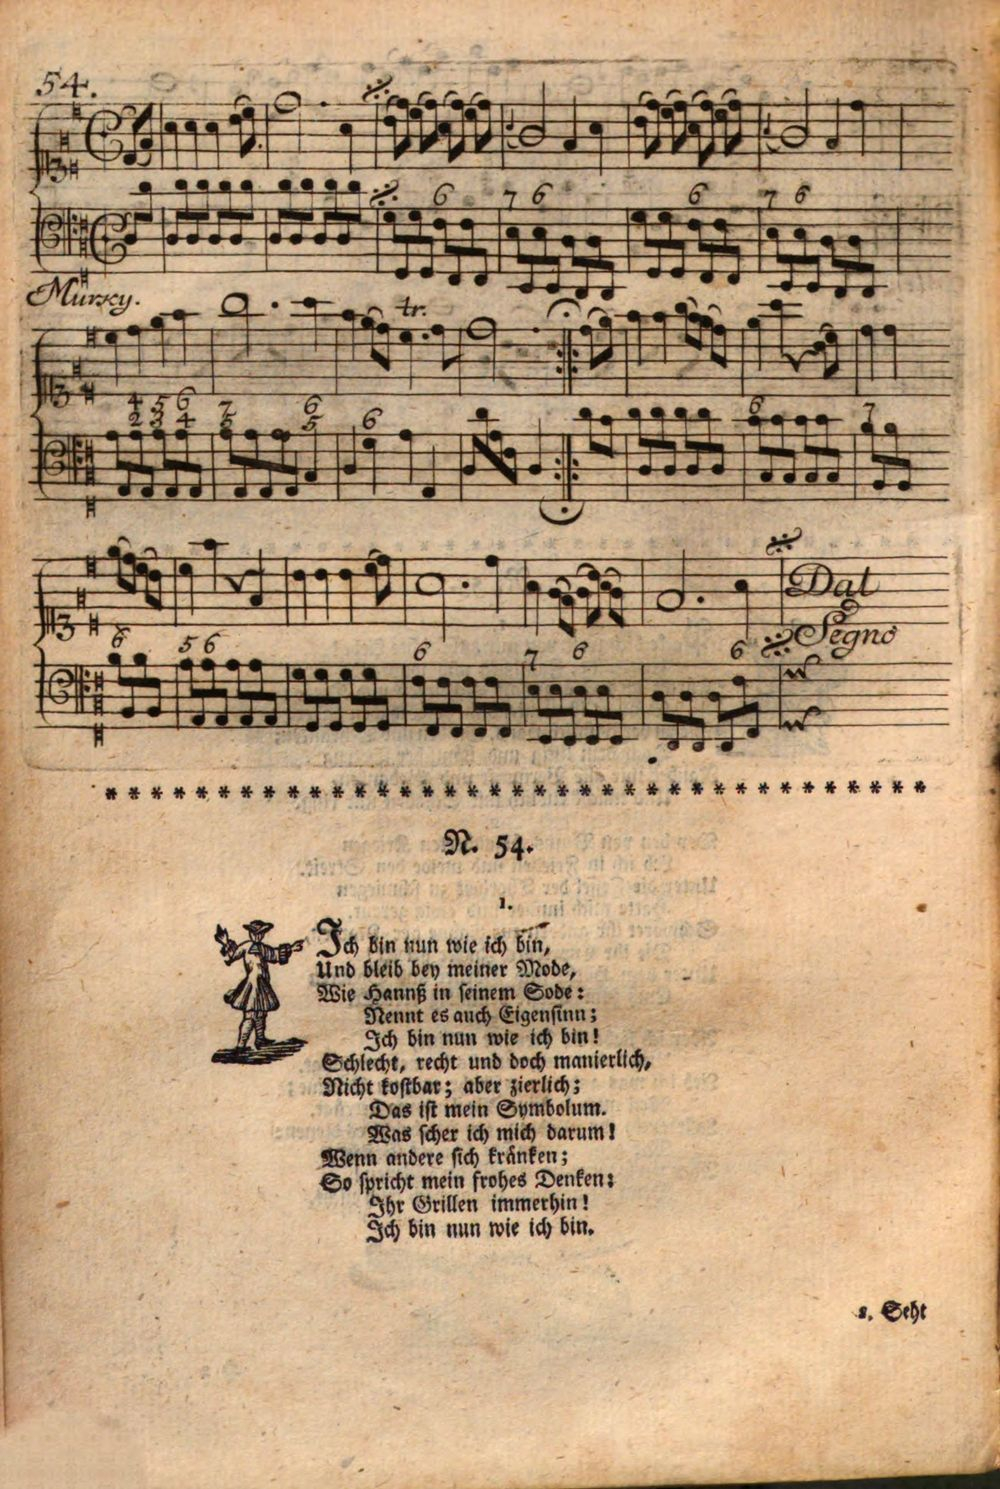 54.
6 7 6 6 7 6
Mursky.
tr.
4 5 6 7 6 6 6 7
2 3 4 5 5
Dal
Segno
6 5 6 6 7 6 6
N. 54.
1.
Ich bin nun wie ich bin,
Und bleib bey meiner Mode,
Wie Hannß in seinem Sode:
Nennt es auch Eigensinn;
Ich bin nun wie ich bin!
Schlecht, recht und doch manierlich,
Nicht kostbar; aber zierlich;
Das ist mein Symbolum.
Was scher ich mich darum!
Wenn andere sich kränken;
So spricht mein frohes Denken:
Ihr Grillen immerhin!
Ich bin nun wie ich bin.
2. Seht